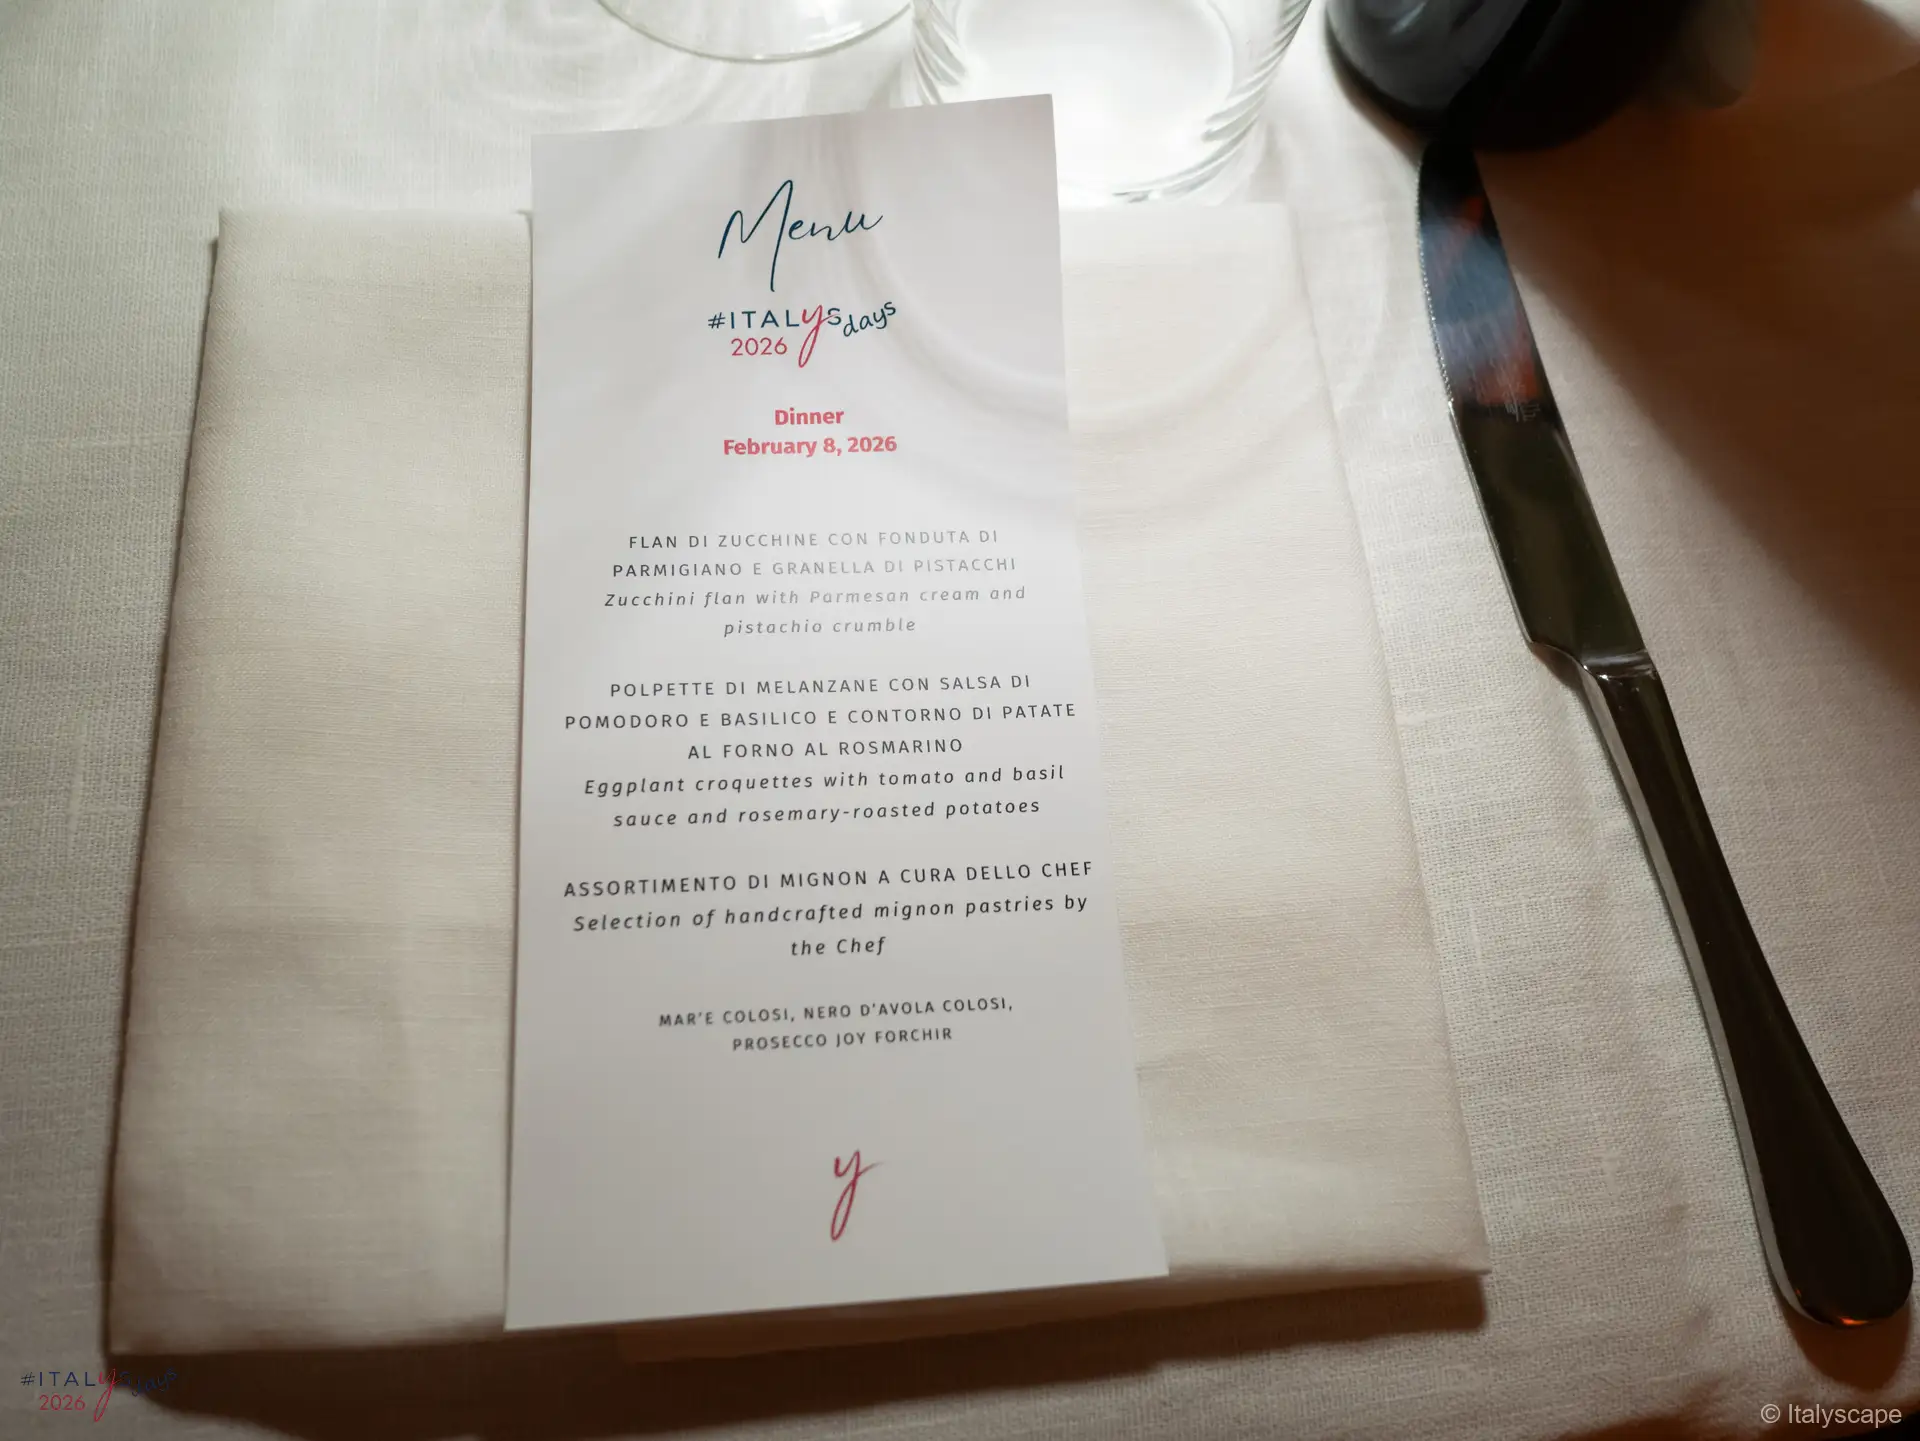 Menu
#ITALYSdays
2026
Dinner
February 8, 2026
FLAN DI ZUCCHINE CON FONDUTA DI
PARMIGIANO E GRANELLA DI PISTACCHI
Zucchini flan with Parmesan cream and
pistachio crumble
POLPETTE DI MELANZANE CON SALSA DI
POMODORO E BASILICO E CONTORNO DI PATATE
AL FORNO AL ROSMARINO
Eggplant croquettes with tomato and basil
sauce and rosemary-roasted potatoes
ASSORTIMENTO DI MIGNON A CURA DELLO CHEF
Selection of handcrafted mignon pastries by
the Chef
MAR'E COLOSI, NERO D'AVOLA COLOSI,
PROSECCO JOY FORCHIR
y
#ITALYSdays
2026
© Italyscape